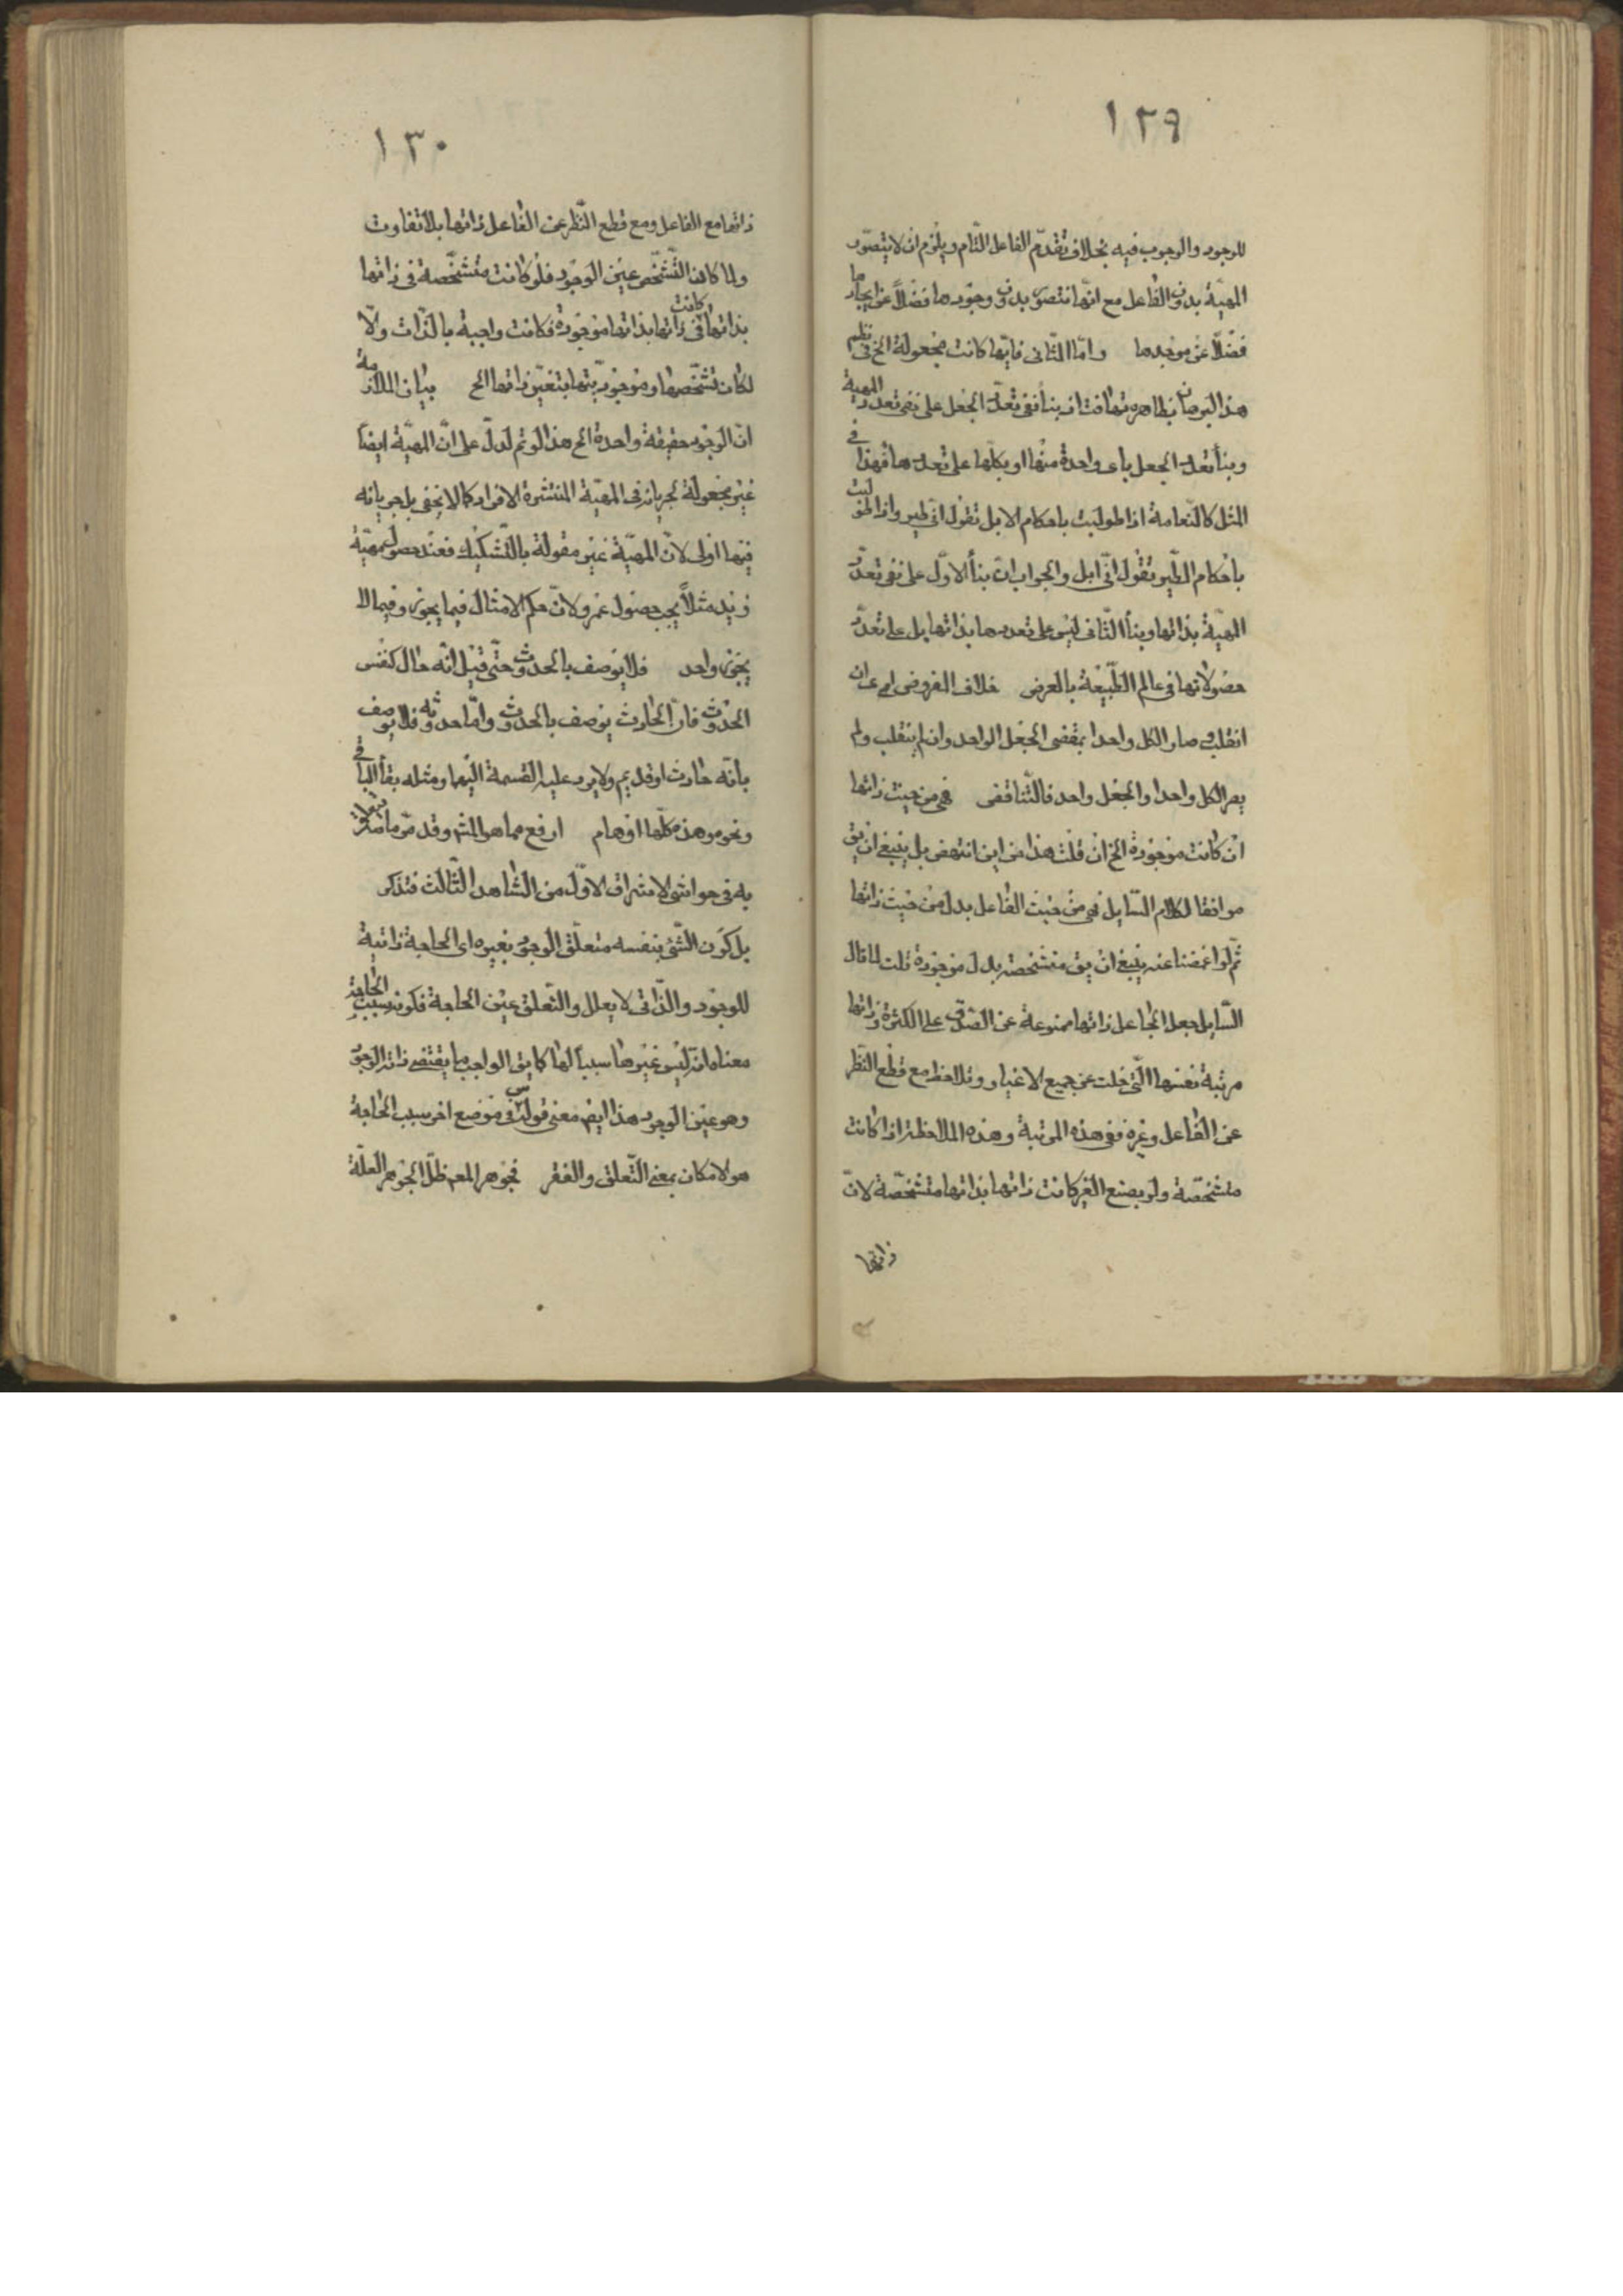 ١٢٩
للوجود والوجوب فيه بخلاف تقدّم الفاعل التّام ويلزم ان لا يتصوّر
المهيّة بدون الفاعل مع انّها نتصوّر بدون وجودها فضلاً عن ايجادها
فضلاً عن موجدها وامّا الثّانى فانّها كانت مجعولة الخ فى نظم
هذا البرهان بظاهره تهافت اذ بناء نفى تعدّد الجعل على نفى تعدّد المهية
وبناء تعدد الجعل باى واحدة منها او بكلّها على تعددها فهذا فى
المثل كالنّعامة اذا طولبت باحكام الابل تقول انّى طير واذا طولبت
باحكام الطّير تقول انّى ابل والجواب ان بناء الاوّل على نفى تعدّد
المهيّة بذاتها وبناء الثّانى ليس على تعددها بذاتها بل على تعدّد
حصولاتها فى عالم الطّبيعة بالعرض خلاف الفروض اى ان
انقلب وصار الكل واحدا بمقتضى الجعل الواحد وان لم ينقلب ولم
يصر الكل واحدا والجعل واحد فالتّناقض فهى من حيث ذاتها
ان كانت موجودة الخ ان قلت هذا من اين انتهض بل ينبغى ان يق
موافقا لكلام السّايل فهى من حيث الفاعل بدل من حيث ذاتها
ثمّ لو اغمضنا عنه ينبغى ان يق متشخصة بدل موجودة قلت لما قال
السّايل جعل الجاعل ذاتها ممنوعة عن الصّدق على الكثرة وذاتها
مرتبة نفسها الّتى خلت عن جميع الاغيار وتلاحظ مع قطع النّظر
عن الفاعل وغيره ففى هذه المرتبة وهذه الملاحظة اذا كانت
متشخّصة ولو بصنع الغير كانت ذاتها بذاتها متشخّصة لانّ
ذاتها
١٣٠
ذاتها مع الفاعل ومع قطع النّظر عن الفاعل ذاتها بلا تفاوت
ولما كان التّشخّص عين الوجود فلو كانت متشخّصة فى ذاتها
بذاتها كانت فى ذاتها بذاتها موجودة فكانت واجبة بالذّات والّا
لكان تشخّصها وموجوديّتها بتغيّر ذاتها الخ بيان الملازمة
انّ الوجود حقيقة واحدة الخ هذا لو تم لدلّ على انّ المهيّة ايضاً
غير مجعولة لجريانه فى المهيّة المنتشرة الافراد كما لا يخفى بل جريانه
فيها اولى لانّ المهيّة غير مقولة بالتّشكيك فعند حصول مهيّة
زيد مثلاً يجب حصول عمرو لانّ حكم الامثال فيما يجوز وفيما لا
يجوز واحد فلا يوصف بالحدوث حتّى قيل انّه حال كنفس
الحدوث فانّ الحادث يوصف بالحدوث وامّا حدوثه فلا يوصف
بانّه حادث او قديم ولا يرد عليه القسمة اليهما ومثله بقاء الباقى
ونحوه وهذه كلّها اوهام ارفع مما هو المشـ وقد مرّ ما يتعلق
به فى حواشى الاشراق الاوّل من الشّاهد الثّالث فتذكر
بل كون الشّئ بنفسه متعلّق الوجود بغيره اى الحاجة ذاتية
للوجود والذّاتى لا يعلل والتّعلق عين الحاجة فكونه سبب الحاجة
معناه انّه ليس غيرها سبباً لها كما يق الواجب ما يقتضى ذاته الوجود
وهو عين الوجود هذا ايضـ معنى قوله س فى موضع اخر سبب الحاجة
هو الامكان بمعنى التّعلق والفقر فجوهر المعـ ظلّ لجوهر العلّة